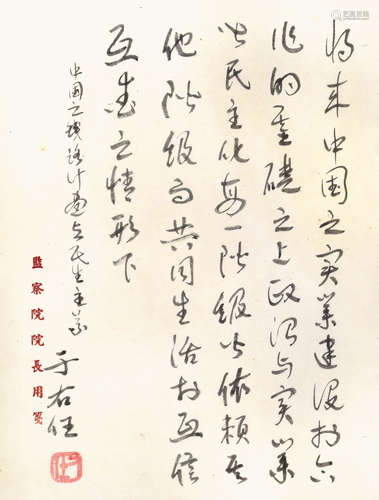 将来中国之实業建设於合
作的基礎之上政治与实業
皆民主化每一階級皆依賴其
他階級而共同生活於互信
互爱之情形下
中国之铁路计画与民生主义
于右任
監察院院長用箋